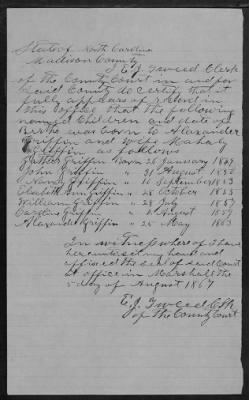 State of North Carolina
Madison County
I E. J. Tweed Clerk
of the County Court in and for
said County do certify that it
fully appears of record in
this office that the following
named Children and date of
Berthe was born to Alexander
Griffin and Wife Mahaly
Griffin as follows
Griffin Born 28 January
John Griffin " 31 August
Nancy Griffin " 10 September
Elisabeth Ann Griffin " 28 October
William Griffin " 28 July
Caroline Griffin " August
Alexander Griffin " 25 May
In witness whereof I have
hereunto set my hand and
affixed the seal of said Court
at office in Marshall the
5 day of August 1867
E. J. Tweed Clk
of the County Court